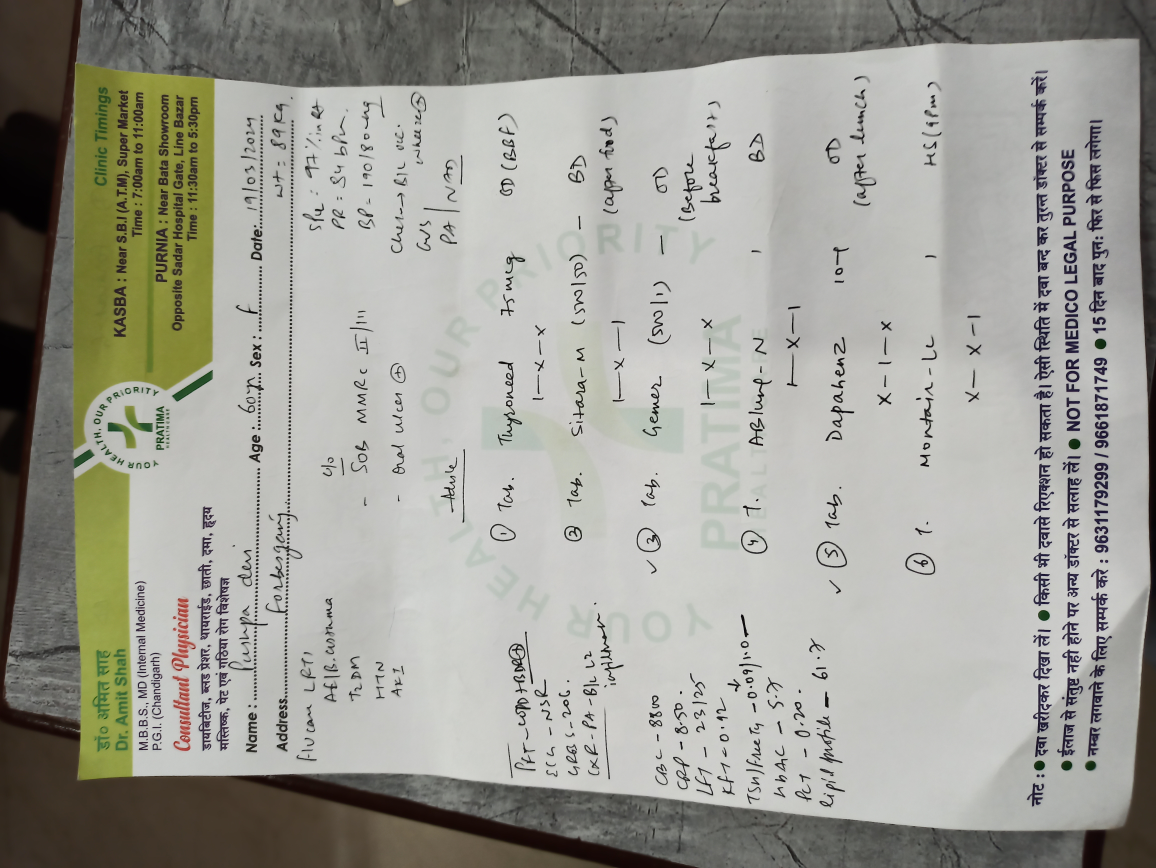 डॉ० अमित साह
Dr. Amit Shah
M.B.B.S., MD (Internal Medicine)
P.G.I. (Chandigarh)
Consultant Physician
डायबिटीज, ब्लड प्रेशर, थायराईड, छाती, दमा, हृदय
मस्तिष्क, पेट एवं गठिया रोग विशेषज्ञ
YOUR HEALTH, OUR PRIORITY
PRATIMA
Clinic Timings
KASBA : Near S.B.I (A.T.M), Super Market
Time : 7:00am to 11:00am
PURNIA : Near Bata Showroom
Opposite Sadar Hospital Gate, Line Bazar
Time : 11:30am to 5:30pm
Name : Pushpa devi Age : 60yr Sex : F Date: 19/03/2024
Address. Forbesganj wt = 89 Kg
LRTI
T2DM
HTN
AKI
c/o
- SOB MMRC II/III
- Oral ulcer (+)
SPO2 : 97% in RA
PR = 54 bpm.
BP = 170/80 mmHg
Chest → B/L VBC.
CVS wheeze (+)
PA / NAD
Advice
① Tab. Thyroneed 75 mcg OD (BBF)
1-x-x
② Tab. Sitara-M (500/50) - BD
1-x-1 (after food)
✓ ③ Tab. Gemer (500/1) - OD
1-x-x (Before breakfast)
④ T. ABlung-N 1 BD
1-x-1
✓ ⑤ Tab. Dapahenz 10 OD
x-1-x (after lunch)
⑥ T. Montain-LC 1 HS (9Pm)
x-x-1
PFT - COPD + BDR (+)
ECG - NSR
GRBS - 206.
CXR - PA - B/L LZ
infiltration.
CBC - 8800
CRP - 8.50.
LFT - 23/25
KFT - 0.92
TSH/FreeT4 - 0.09/1.0
HbA1C - 5.7
PCT - 0.20.
lipid profile - 61.7
YOUR HEALTH, OUR PRIORITY
PRATIMA
HEALTHCARE
नोट : ● दवा खरीदकर दिखा लें। ● किसी भी दवासे रिएक्शन हो सकता है। ऐसी स्थिति में दवा बन्द कर तुरन्त डॉक्टर से सम्पर्क करें।
● ईलाज से संतुष्ट नही होने पर अन्य डॉक्टर से सलाह लें। ● NOT FOR MEDICO LEGAL PURPOSE
● नम्बर लगवाने के लिए सम्पर्क करे : 9631179299 / 9661871749 ● 15 दिन बाद पुन: फिर से फिस लगेगा।